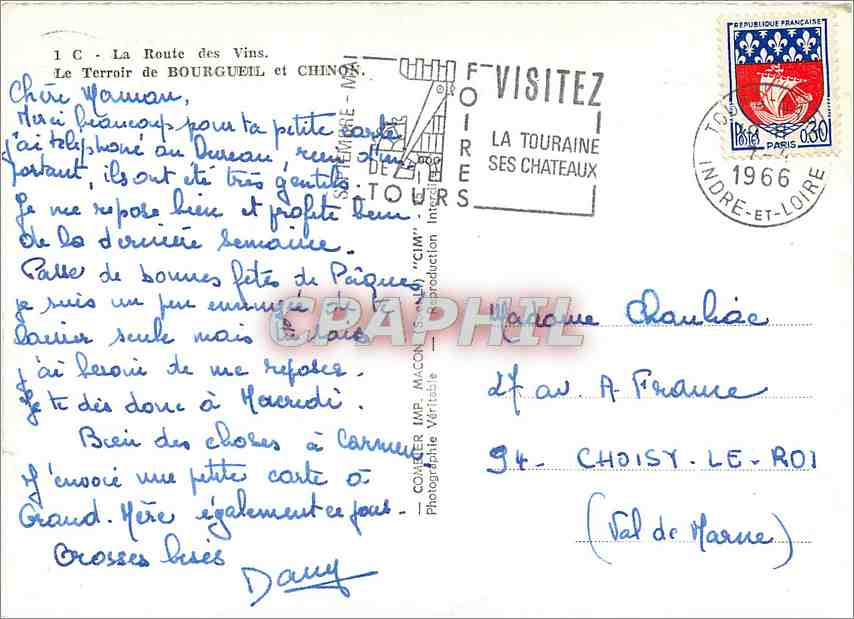 1 C - La Route des Vins.
Le Terroir de BOURGUEIL et CHINON.
Chère Maman,
Merci beaucoup pour ta petite carte
j'ai téléphoné au Bureau, rien d'im
portant, ils ont été très gentils.
Je me repose bien et profite bien
de la dernière semaine.
Passe de bonnes fêtes de Pâques
je suis un peu ennuyée de te
laisser seule mais tu vois
j'ai besoin de me reposer.
Je te dis donc à Mercredi.
Bien des choses à Carmen,
J'envoie une petite carte à
Grand-Mère également ce jour.
Grosses bises
Dany
SEPTEMBRE - MAI
FOIRES
DE
TOURS
VISITEZ
LA TOURAINE
SES CHATEAUX
REPUBLIQUE FRANÇAISE
POSTES
0,30
PARIS
1966
INDRE-ET-LOIRE
— COMBIER IMP. MACON (S.-et-L.) "CIM"
Photographie Véritable — Reproduction Interdite
CPAPHIL
Madame Chauliac
27 av. A. France
94 - CHOISY-LE-ROI
(Val de Marne)